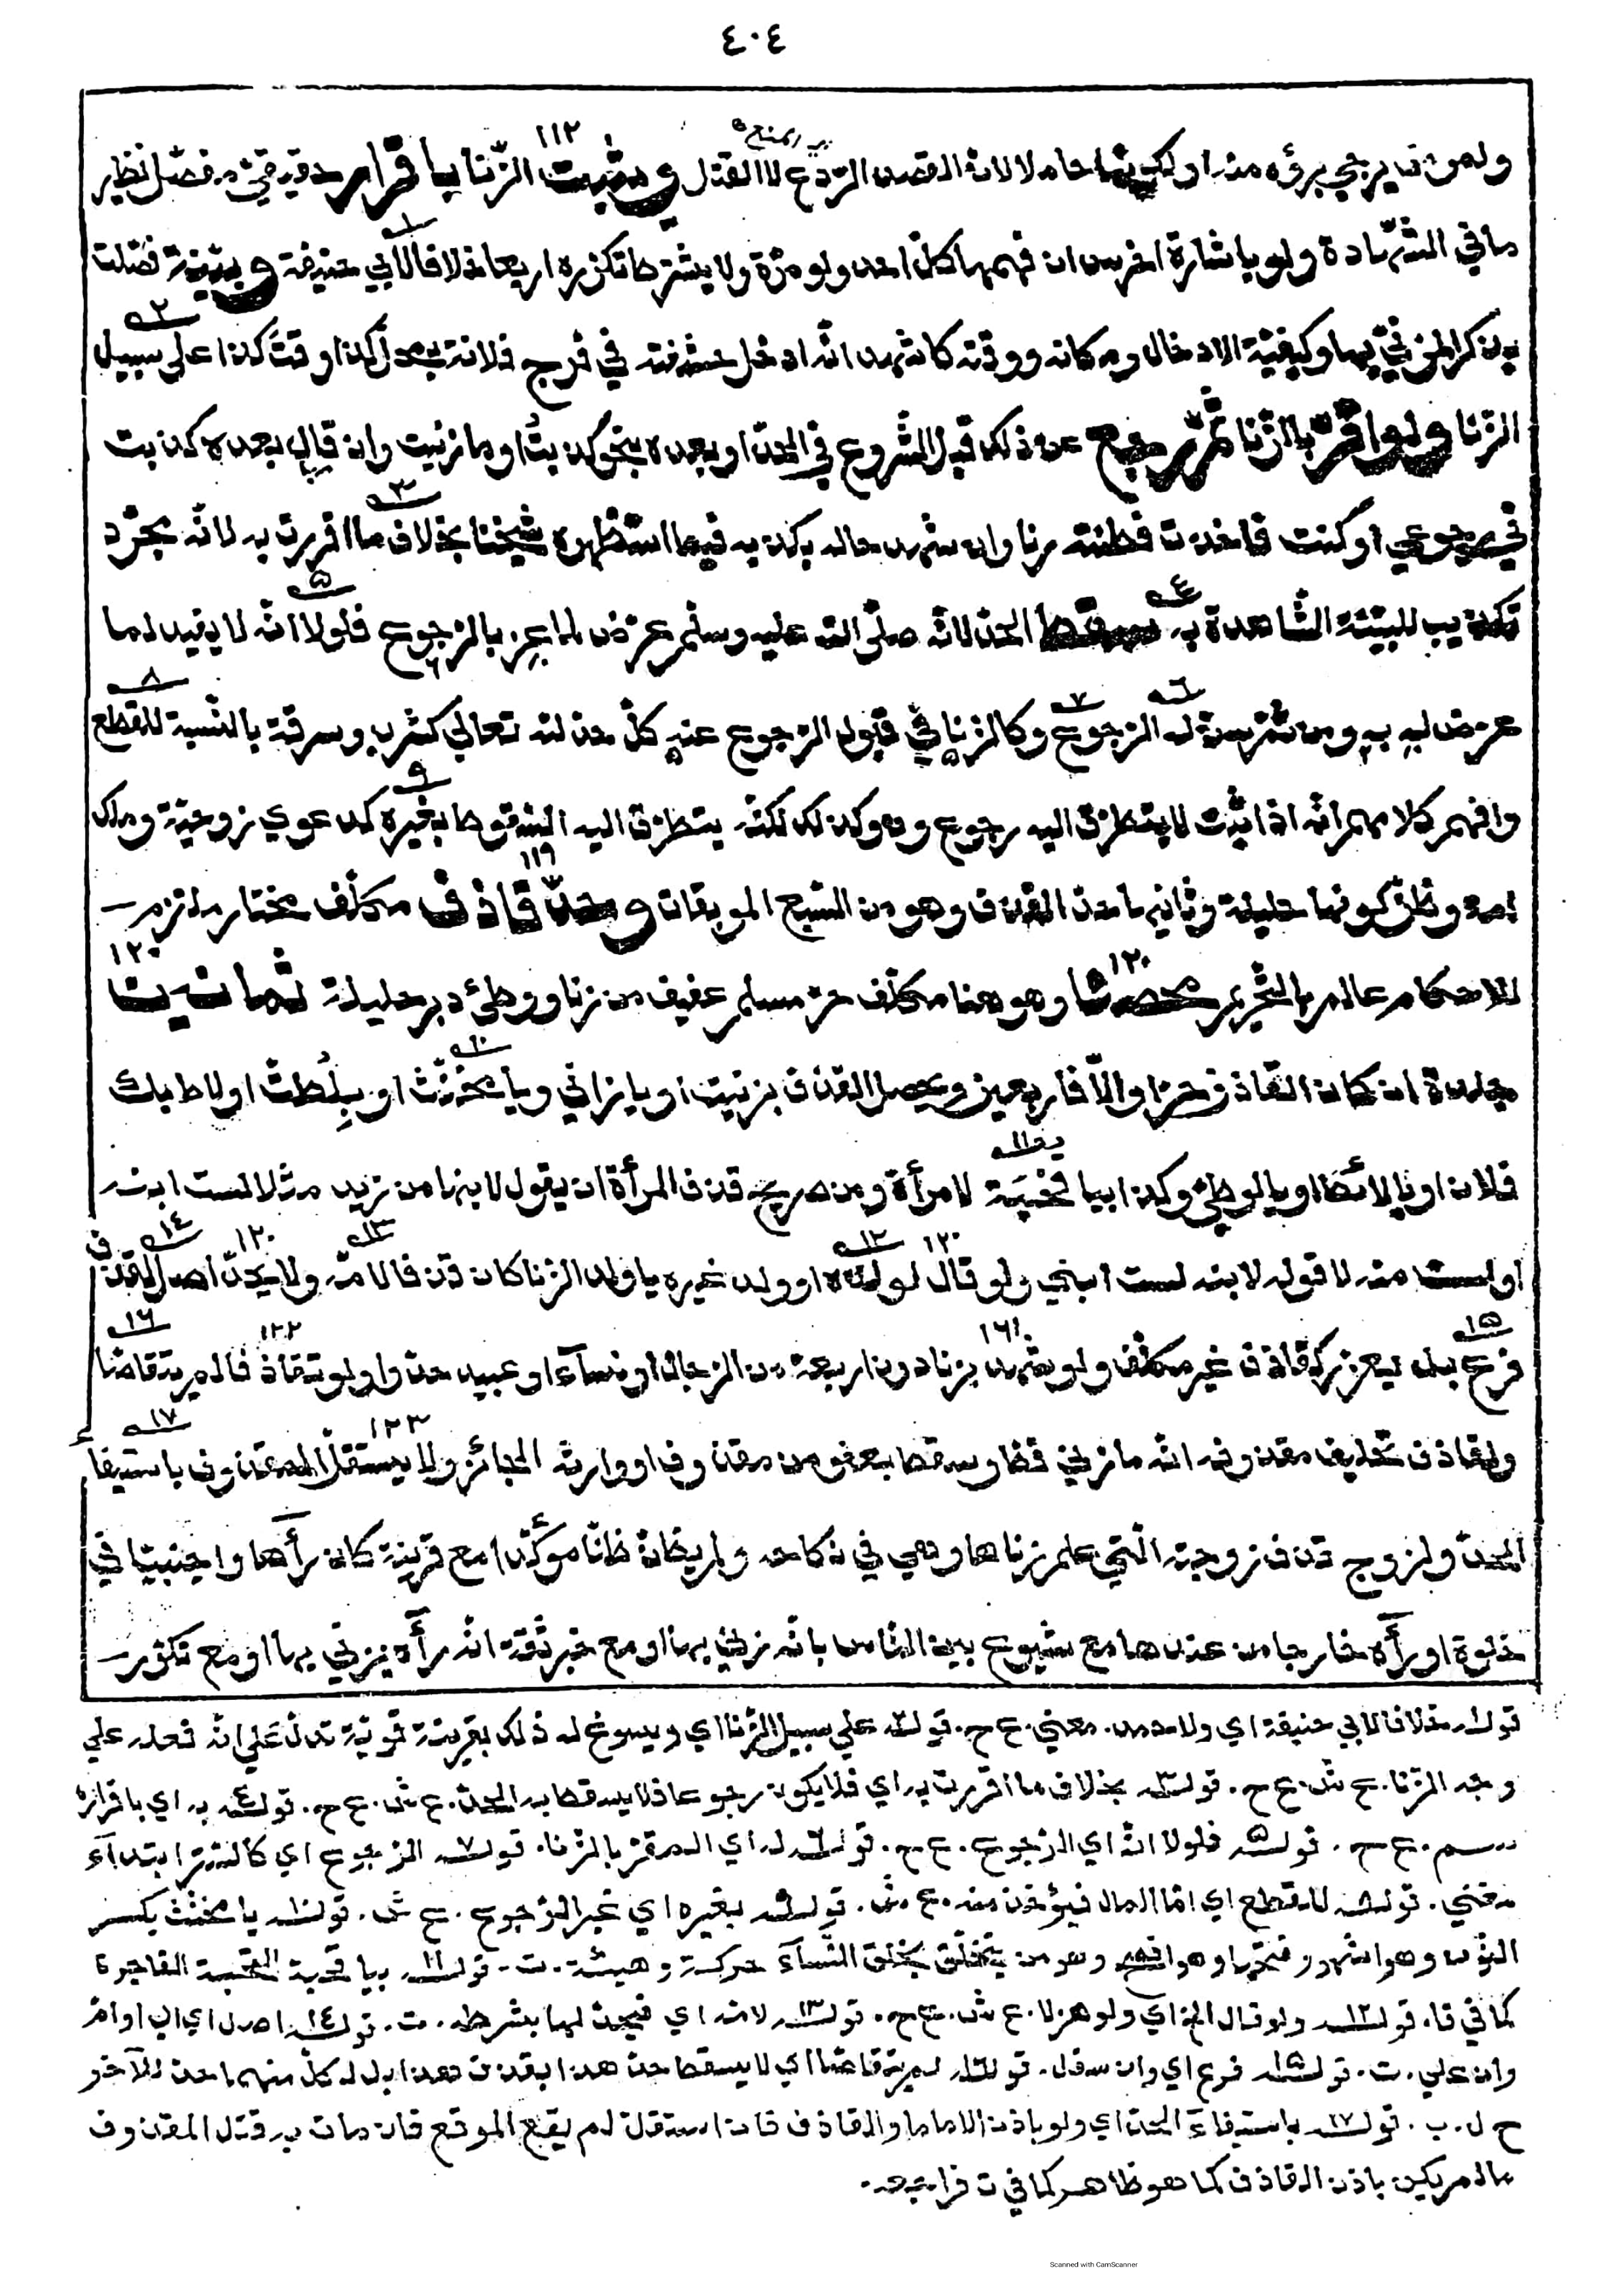 ٤٠٤
ولمرض يرجى برؤه منه او لكونها حاملا لان القصد الردع لا القتل ويثبت الزنا باقرار حقيقي مفصل نظير
ما في الشهادة ولو باشارة اخرس ان فهمها كل احد ولو مرة ولا يشترط تكرره اربعا خلافا لابي حنيفة وبينة فصلت
بذكر المزني بها وكيفية الادخال ومكانه ووقته كاشهد انه ادخل حشفته في فرج فلانة بمحل كذا وقت كذا على سبيل
الزنا ولو اقر بالزنا ثم رجع عن ذلك قبل الشروع في الحد او بعده بنحو كذبت او ما زنيت وان قال بعده كذبت
في رجوعي او كنت فاخذت فظننته زنا وان شهد حاله بكذبه فيما استظهره شيخنا بخلاف ما اقررت به لانه مجرد
تكذيب للبينة الشاهدة به سقط الحد لانه صلى الله عليه وسلم عرض لماعز بالرجوع فلولا انه لا يفيد لما
عرض له به ومن ثم سن له الرجوع وكالزنا في قبول الرجوع عنه كل حد لله تعالى كشرب وسرقة بالنسبة للقطع
وافهم كلامهم انه اذا ثبت لا يتطرق اليه رجوع وهو كذلك لكنه يتطرق اليه السقوط بغيره كدعوي زوجية وملك
امة وظن كونها حليلة وثانيها حد القذف وهو من السبع الموبقات وحد قاذف مكلف مختار ملتزم
للاحكام عالم بالتحريم محصنا وهو هنا مكلف حر مسلم عفيف من زنا ووطئ دبر حليلة ثمانين
جلدة ان كان القاذف حرا والا فاربعين ويحصل القذف بزنيت او يا زاني ويا مخنث او بلطت او لاط بك
فلان او يا لائط او يا لوطي وكذا بيا قحبة لامرأة ومن صريح قذف المرأة ان يقول لابنها من زيد مثلا لست ابنه
او لست منه لا قوله لابنه لست ابني ولو قال لولده او ولد غيره يا ولد الزنا كان قذفا لامه ولا يحد اصل لقذف
فرع بل يعزر كقاذف غير مكلف ولو شهد بزنا دون اربعة من الرجال او نساء او عبيد حدوا ولو تقاذفا لم يتقاصا
ولقاذف تحليف مقذوفه انه ما زني قط وسقط بعفو من مقذوف او وارثه الحائز ولا يستقل المقذوف باستيفاء
الحد ولزوج قذف زوجته التي علم زناها وهي في نكاحه ولو بظن ظنا مؤكدا مع قرينة كان رأها واجنبيا في
خلوة او رأه خارجا من عندها مع شيوع بين الناس بانه زني بها او مع خبر ثقة انه رأه يزني بها او مع تكرر
قوله خلافا لابي حنيفة اي ولاحمد. مغني. ع ح. قوله علي سبيل الزنا اي ويسوغ له ذلك بقرينة قوية تدل علي انه فعله علي
وجه الزنا. ع ش. ع ح. قوله بخلاف ما اقررت به اي فلا يكون رجوعا فلا يسقط به الحد. ع ش. ع ح. قوله به اي باقراره
سم. ع ح. قوله فلولا انه اي الرجوع. ع ح. قوله له اي المقر بالزنا. قوله الرجوع اي كالستر ابتداء
مغني. قوله للقطع اي اما المال فيؤخذ منه. ع ش. قوله بغيره اي غير الرجوع. ع ش. قوله يا مخنث بكسر
النون وهو اشهر وفتحها وهو افصح وهو من يتخلق بخلق النساء حركة وهيئة. ت. قوله بيا قحبة القحبة الفاجرة
كما في قا. قوله ولو قال الخ اي ولو هزلا. ع ش. ع ح. قوله لامه اي فيحد لها بشرطه. ت. قوله اصل اي اب او ام
وان علي. ت. قوله فرع اي وان سفل. قوله لم يتقاصا اي لا يسقط حد هذا بقذف هذا بل لكل منهما حد للآخر
ح ل. ب. قوله باستيفاء الحد اي ولو باذن الامام او القاذف فان استقل لم يقع الموقع فان مات به قتل المقذوف
ما لم يكن باذن القاذف كما هو ظاهر كما في ت فراجعه.
Scanned with CamScanner